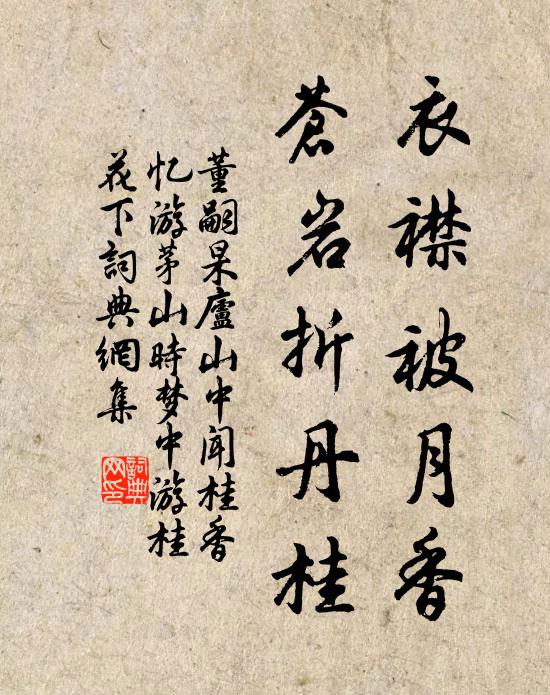 衣襟被月香
蒼岩折丹桂
董嗣杲廬山中闻桂香
忆游茅山時梦中游桂
花下詞典網集
詞典
网印